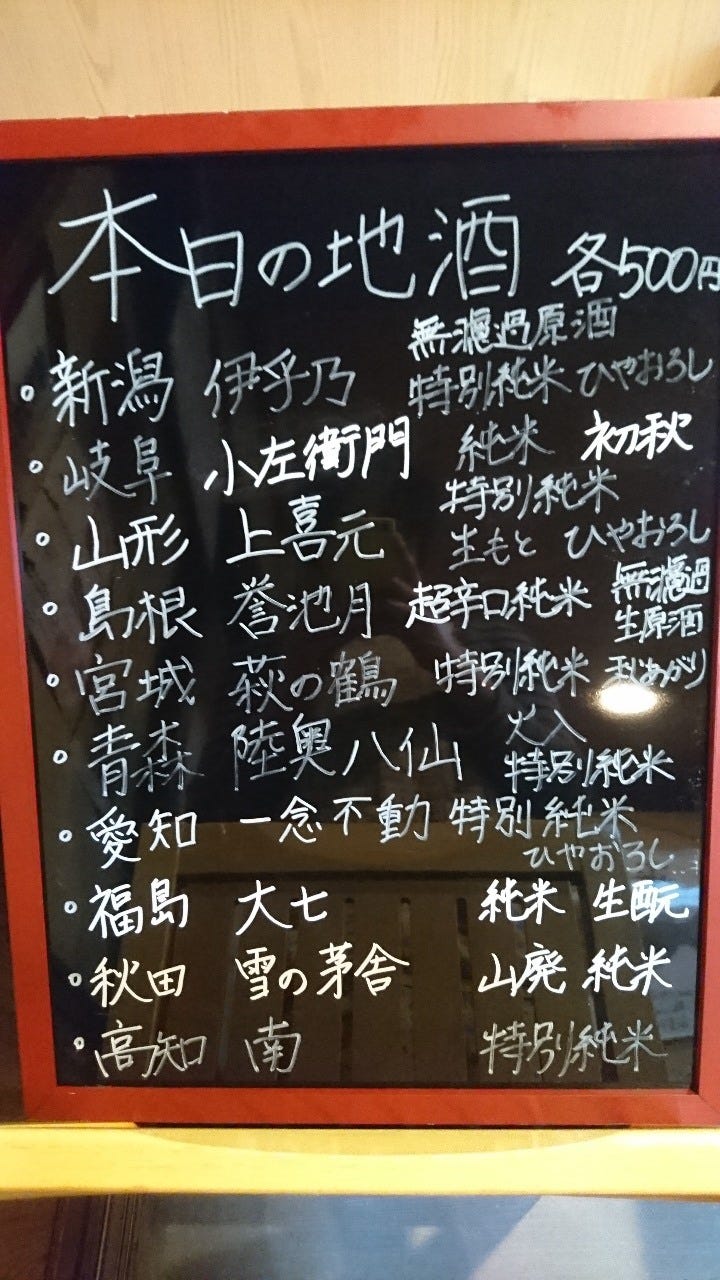 本日の地酒 各500円
無濾過原酒
・新潟 伊乎乃 特別純米 ひやおろし
・岐阜 小左衛門 純米 初秋
特別純米
・山形 上喜元 生もと ひやおろし
・島根 誉池月 超辛口純米 無濾過
生原酒
・宮城 萩の鶴 特別純米 秋あがり
火入
・青森 陸奥八仙 特別純米
・愛知 一念不動 特別純米
ひやおろし
・福島 大七 純米 生酛
・秋田 雪の茅舎 山廃 純米
・高知 南 特別純米